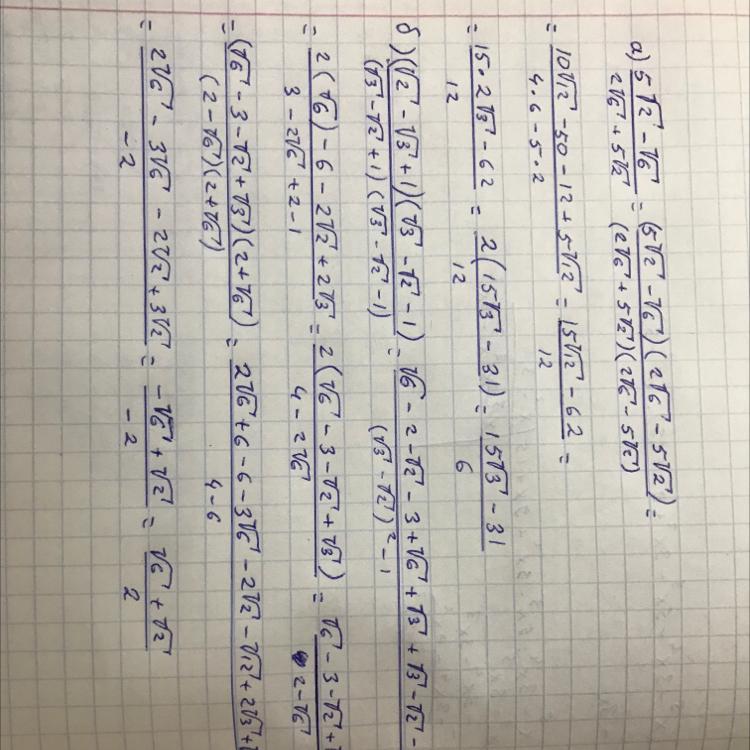 а) (5√2 - √6)/(2√6 + 5√2) = ((5√2 - √6)(2√6 - 5√2))/((2√6 + 5√2)(2√6 - 5√2)) =
= (10√12 - 50 - 12 + 5√12)/(4·6 - 5·2) = (15√12 - 62)/12 =
= (15·2√3 - 62)/12 = (2(15√3 - 31))/12 = (15√3 - 31)/6
б) ((√2 - √3 + 1)(√3 - √2 - 1))/((√3 - √2 + 1)(√3 - √2 - 1)) = (√6 - 2 - √2 - 3 + √6 + √3 + √3 - √2 -)/((√3 - √2)² - 1)
= (2(√6) - 6 - 2√2 + 2√3)/(3 - 2√6 + 2 - 1) = (2(√6 - 3 - √2 + √3))/(4 - 2√6) = (√6 - 3 - √2 +)/(2 - √6)
= ((√6 - 3 - √2 + √3)(2 + √6))/((2 - √6)(2 + √6)) = (2√6 + 6 - 6 - 3√6 - 2√2 - √12 + 2√3 +)/(4 - 6)
= (2√6 - 3√6 - 2√2 + 3√2)/(-2) = (-√6 + √2)/(-2) = (√6 + √2)/2